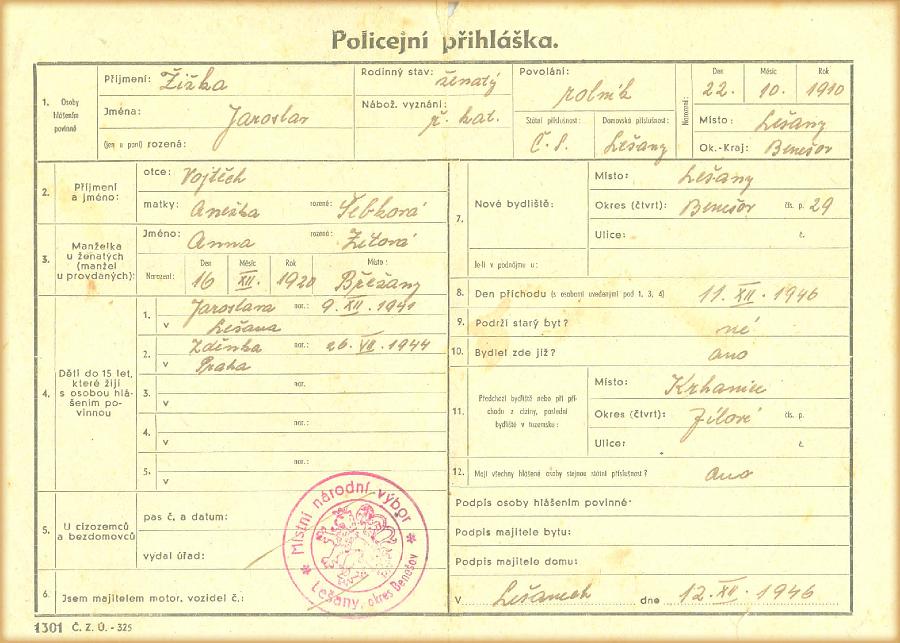 Policejní přihláška.
1. Osoby hlášením povinné
Příjmení: Žižka
Jména: Jaroslav
(jen u paní) rozená:
Rodinný stav: ženatý
Nábož. vyznání: ř. kat.
Povolání: rolník
Státní příslušnost: Č. S.
Domovská příslušnost: Lešany
Narozená:
Den Měsíc Rok
22. 10. 1910
Místo: Lešany
Ok.-Kraj: Benešov
2. Příjmení a jméno:
otce: Vojtěch
matky: Anežka rozené: Šebková
3. Manželka u ženatých (manžel u provdaných):
Jméno: Anna rozená: Zítová
Narození: Den Měsíc Rok Místo:
16 XII. 1920 Břežany
4. Děti do 15 let, které žijí s osobou hlášením povinnou
1. Jaroslava nar.: 9. XII. 1941
v Lešana
2. Zdeňka nar.: 26. VII. 1944
v Praha
3. nar.
v
4. nar.:
v
5. nar.:
v
5. U cizozemců a bezdomovců
pas č. a datum:
vydal úřad:
6. Jsem majitelem motor. vozidel č.:
Místní národní výbor
Lešany, okres Benešov
7. Nové bydliště:
Místo: Lešany
Okres (čtvrt): Benešov čís. p. 29
Ulice: č.
Je-li v podnájmu u:
8. Den příchodu (s osobami uvedenými pod 1, 3, 4) 11. XII. 1946
9. Podrží starý byt? né
10. Bydlel zde již? ano
11. Předchozí bydliště nebo při příchodu z ciziny, poslední bydliště v tuzemsku:
Místo: Krhanice
Okres (čtvrt): Jílové čís. p.
Ulice: č.
12. Mají všechny hlášené osoby stejnou státní příslušnost? ano
Podpis osoby hlášením povinné:
Podpis majitele bytu:
Podpis majitele domu:
V Lešanech dne 12. XII. 1946
1301 Č. Z. Ú. - 325